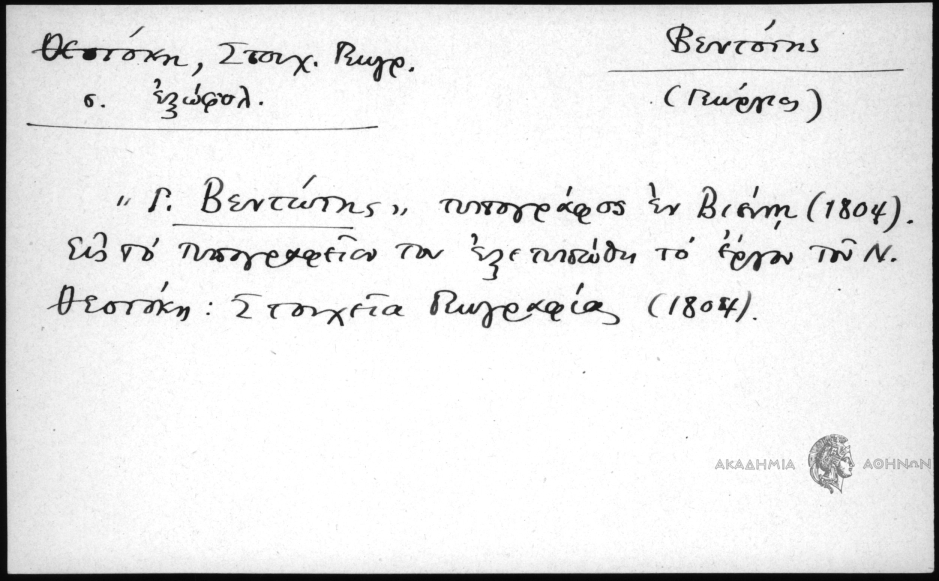 Θεοτόκη, Στοιχ. Γεωγρ.
σ. ἐξώφυλ.
Βεντότης
(Γεώργιος)
"Γ. Βεντώτης" τυπογράφος ἐν Βιέννῃ (1804).
Εἰς τό τυπογραφεῖον του ἐξετυπώθη τό ἔργον τοῦ Ν.
Θεοτόκη: Στοιχεῖα Γεωγραφίας (1804).
ΑΚΑΔΗΜΙΑ ΑΘΗΝΩΝ